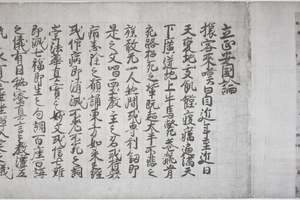 立正安国論
旅客来嘆曰自近年至近日
天變地夭飢饉疫癘遍満天
下廣迸地上牛馬斃巷骸骨
充路招死之輩既超大半不悲之
族敢无一人然間或専利釼即
是之文唱西土教主之名或持衆
病悉除之願誦東方如来之経
或仰病即消滅不老不死之詞
崇法華真實之妙文或信七難
即滅七福即生之句調百座百講
之儀有因秘密真言之教灑五